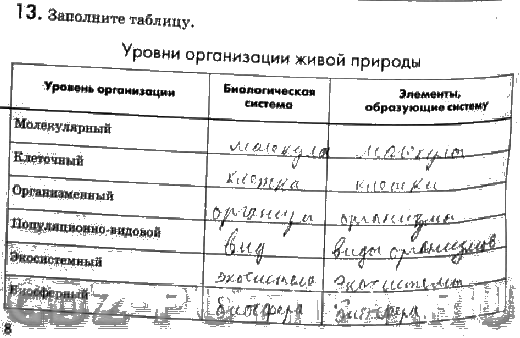 13. Заполните таблицу.
Уровни организации живой природы
Уровень организации Биологическая система Элементы, образующие систему
Молекулярный молекулы молекулы
Клеточный клетка клетки
Организменный организм организмы
Популяционно-видовой вид виды организмов
Экосистемный экосистема экосистемы
Биосферный биосфера биосфера
8